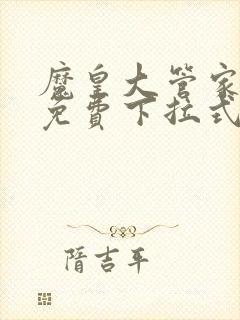 魔皇大管家
免費下拉式
隋吉平